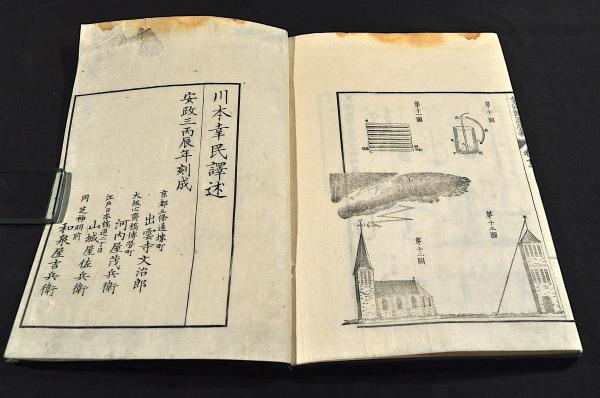 第十圖
第十一圖
第十二圖
第十三圖
川本幸民譯述
安政三丙辰年刻成
京都三條通堺町
出雲寺文治郎
大坂心齋橋博労町
河内屋茂兵衛
江戸日本橋通二丁目
山城屋佐兵衛
同芝神明前
和泉屋吉兵衛